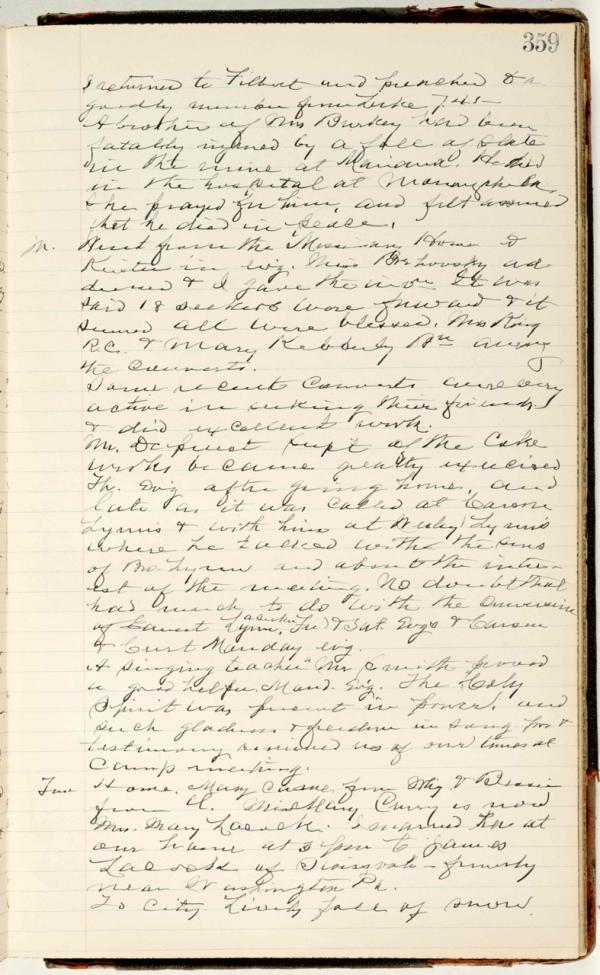 359
I returned to Filbert and preached to a
goodly number from Luke 7.45
A brother of Mrs Burkey had been
fatally injured by a fall of slate
in the mine at Mariana. He died
in the hospital at Monongahela,
& he prayed for him, and felt assured
that he died in peace.
M. Went from the Missionary Home to
in evg. Miss ad-
dressed & I gave the inv. It was
said 18 seekers were forward & it
seemed all were blessed. Mrs King
R.C. & Mary among
the converts.
Some recent converts were very
active in seeking their friends
& did excellent work.
Mr. supt of the Coke
works became greatly exercised
Th. Evg after going home, and
late as it was called at Carson
Lynns & with him at Wesley Lynns
where he talked with the sons
of Bro. Lynn and about the inter-
est of the meeting. No doubt that
had much to do with the conversion
of Earnest Lynn, Fri & Sat. Evgs & Carson
& Curt Monday evg.
A singing teacher Mr Smith proved
a good helper. Mond. Evg. The Holy
Spirit was present in power, and
such gladness & freedom in song &
testimony reminded us of our times at
Camp meeting.
Tues Home. Mary came from & Bessie
from U. Miss Mary Curry is now
Mrs. Mary Lacock. I married her at
our home at 3 P.m to James
Lacock of - formerly
near Washington Pa.
To City. Lively fall of snow.